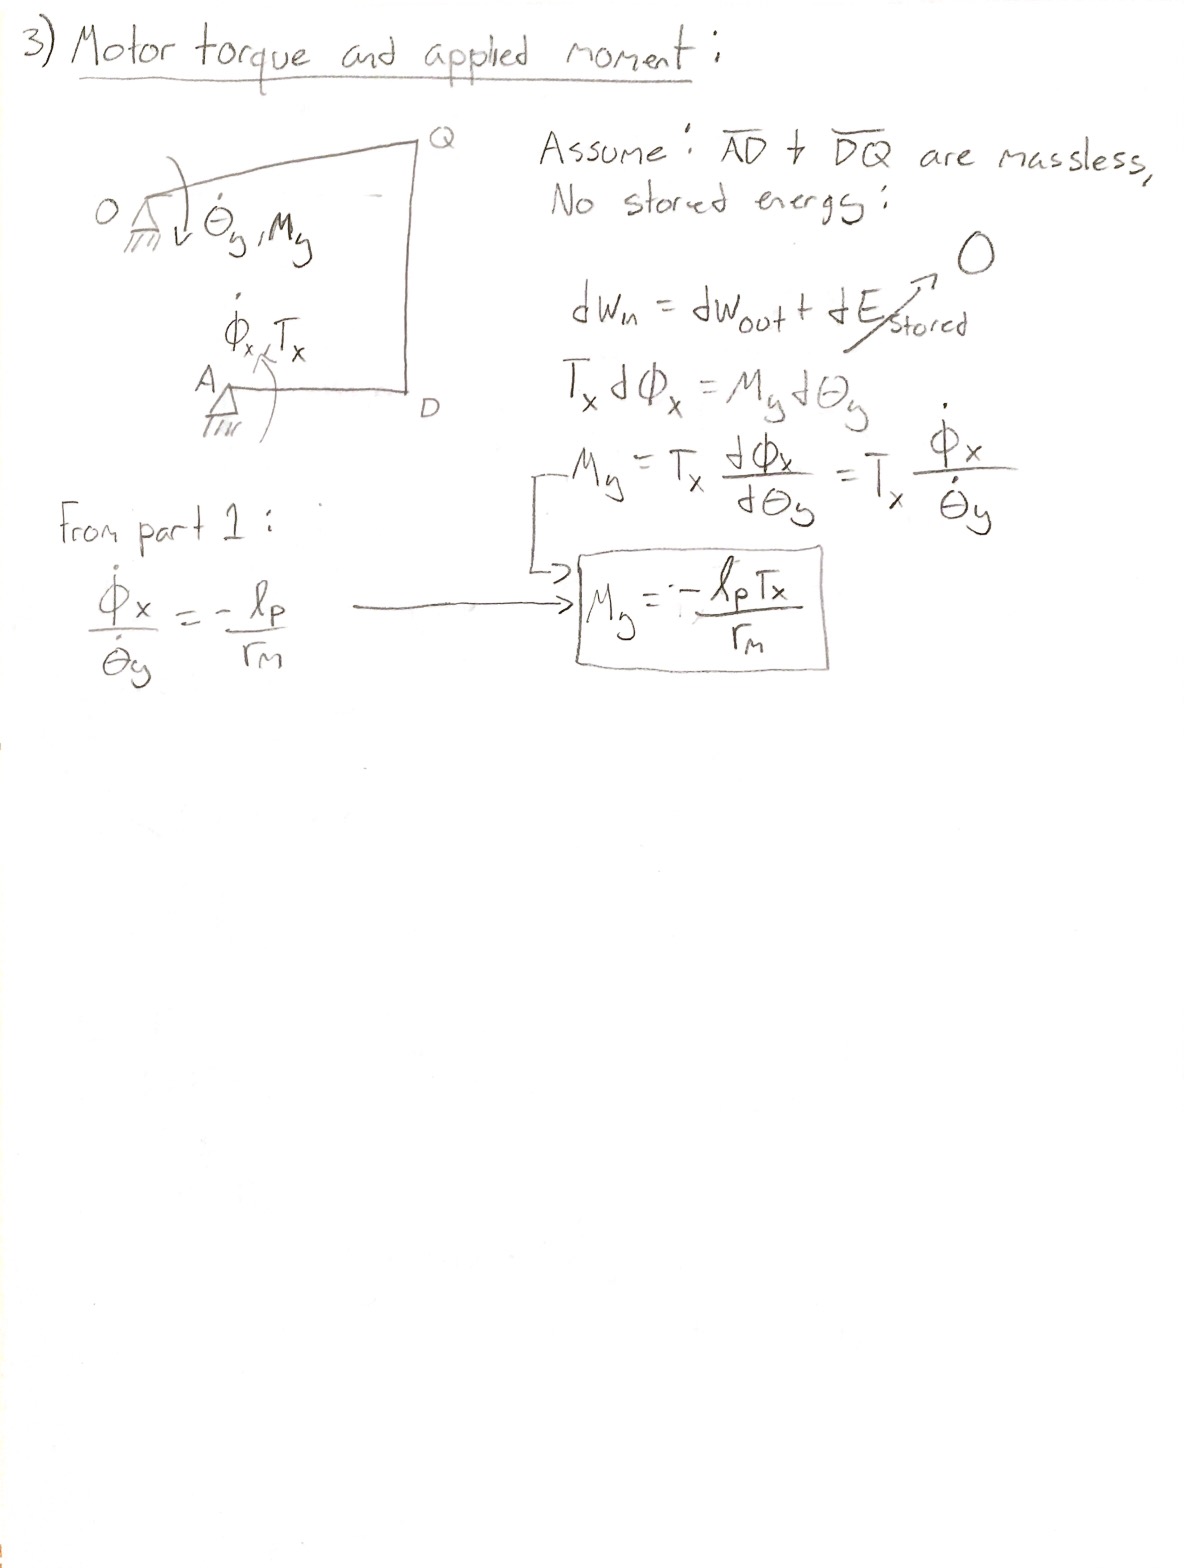 3) Motor torque and applied moment:
Q
O
θ̇y, My
ϕ̇x, Tx
A
D
Assume: A̅D̅ + D̅Q̅ are massless,
No stored energy:
dWin = dWout + dEstored
0
Tx dϕx = My dθy
My = Tx dϕx/dθy = Tx ϕ̇x/θ̇y
From part 1:
ϕ̇x/θ̇y = - lp/rm
My = - lpTx/rm